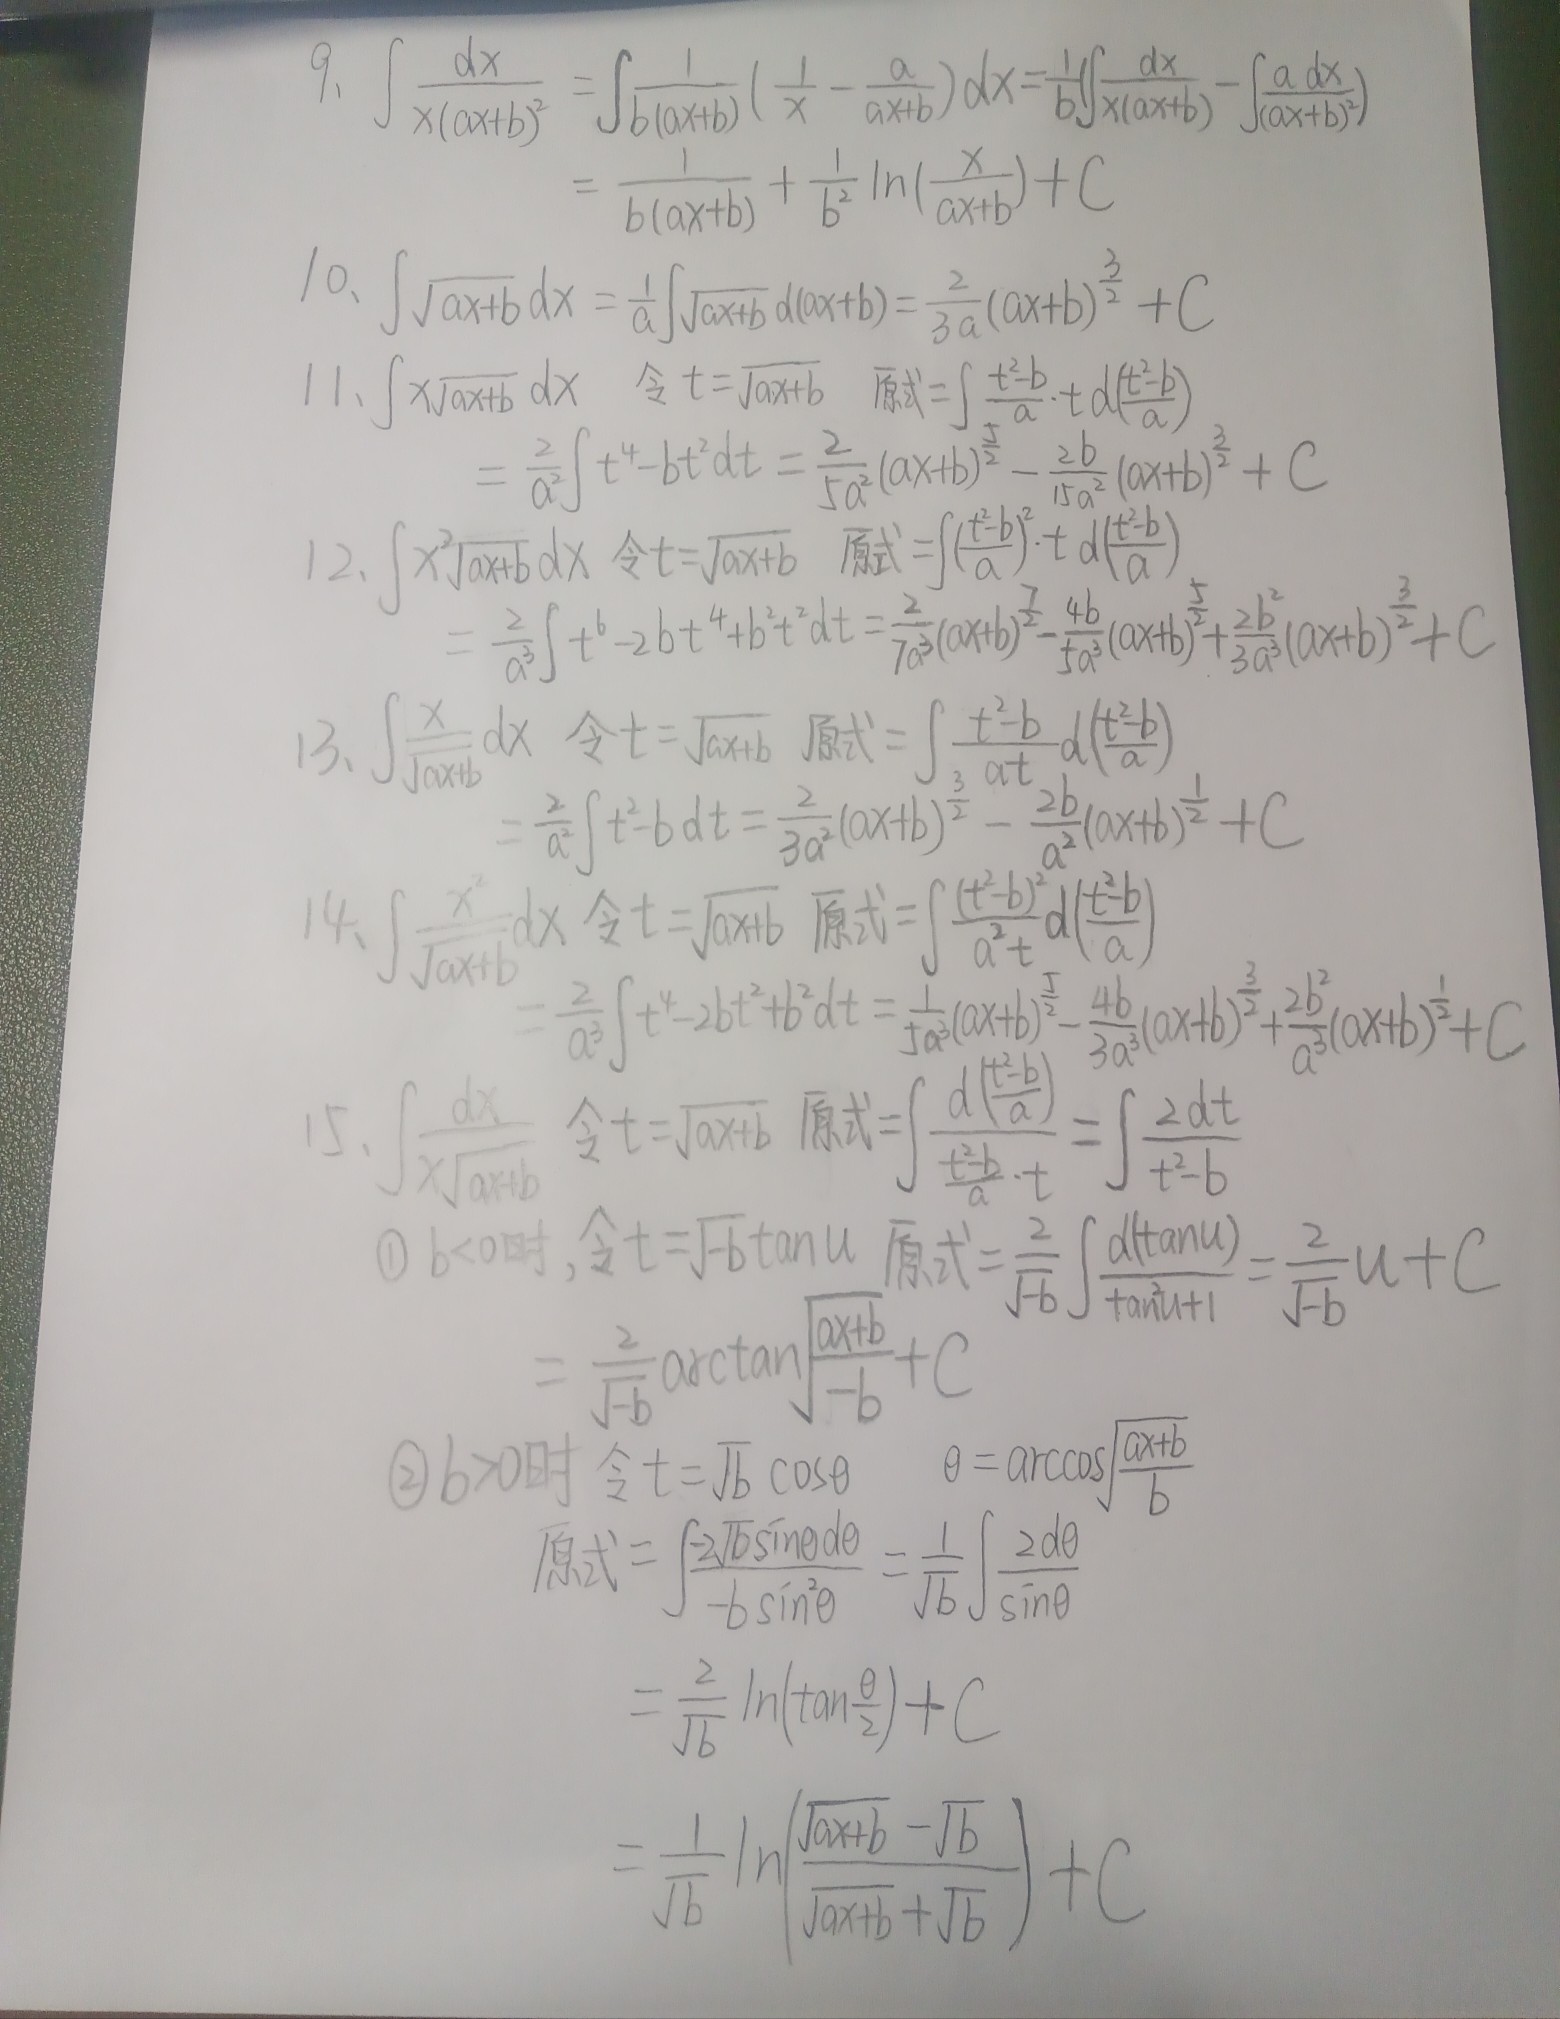 9、∫ dx/(x(ax+b)²) = ∫ 1/(b(ax+b)) (1/x − a/(ax+b)) dx = 1/b (∫ dx/(x(ax+b)) − ∫ a dx/(ax+b)²)
= 1/(b(ax+b)) + 1/b² ln(x/(ax+b)) + C
10、∫ √(ax+b) dx = 1/a ∫ √(ax+b) d(ax+b) = 2/(3a) (ax+b)^(3/2) + C
11、∫ x√(ax+b) dx 令 t = √(ax+b) 原式 = ∫ (t²−b)/a · t d((t²−b)/a)
= 2/a² ∫ t⁴ − bt² dt = 2/(5a²) (ax+b)^(5/2) − 2b/(15a²) (ax+b)^(3/2) + C
12、∫ x²√(ax+b) dx 令 t = √(ax+b) 原式 = ∫ ((t²−b)/a)² · t d((t²−b)/a)
= 2/a³ ∫ t⁶ − 2bt⁴ + b²t² dt = 2/(7a³) (ax+b)^(7/2) − 4b/(5a³) (ax+b)^(5/2) + 2b²/(3a³) (ax+b)^(3/2) + C
13、∫ x/√(ax+b) dx 令 t = √(ax+b) 原式 = ∫ (t²−b)/(at) d((t²−b)/a)
= 2/a² ∫ t² − b dt = 2/(3a²) (ax+b)^(3/2) − 2b/a² (ax+b)^(1/2) + C
14、∫ x²/√(ax+b) dx 令 t = √(ax+b) 原式 = ∫ (t²−b)²/(a²t) d((t²−b)/a)
= 2/a³ ∫ t⁴ − 2bt² + b² dt = 1/(5a³) (ax+b)^(5/2) − 4b/(3a³) (ax+b)^(3/2) + 2b²/a³ (ax+b)^(1/2) + C
15、∫ dx/(x√(ax+b)) 令 t = √(ax+b) 原式 = ∫ d((t²−b)/a)/((t²−b)/a · t) = ∫ 2dt/(t²−b)
① b<0时, 令 t = √(−b) tan u 原式 = 2/√(−b) ∫ d(tan u)/(tan²u+1) = 2/√(−b) u + C
= 2/√(−b) arctan √((ax+b)/(−b)) + C
② b>0时 令 t = √b cosθ θ = arccos √((ax+b)/b)
原式 = ∫ −2√b sinθdθ/(−b sin²θ) = 1/√b ∫ 2dθ/sinθ
= 2/√b ln(tan θ/2) + C
= 1/√b ln((√(ax+b) − √b)/(√(ax+b) + √b)) + C